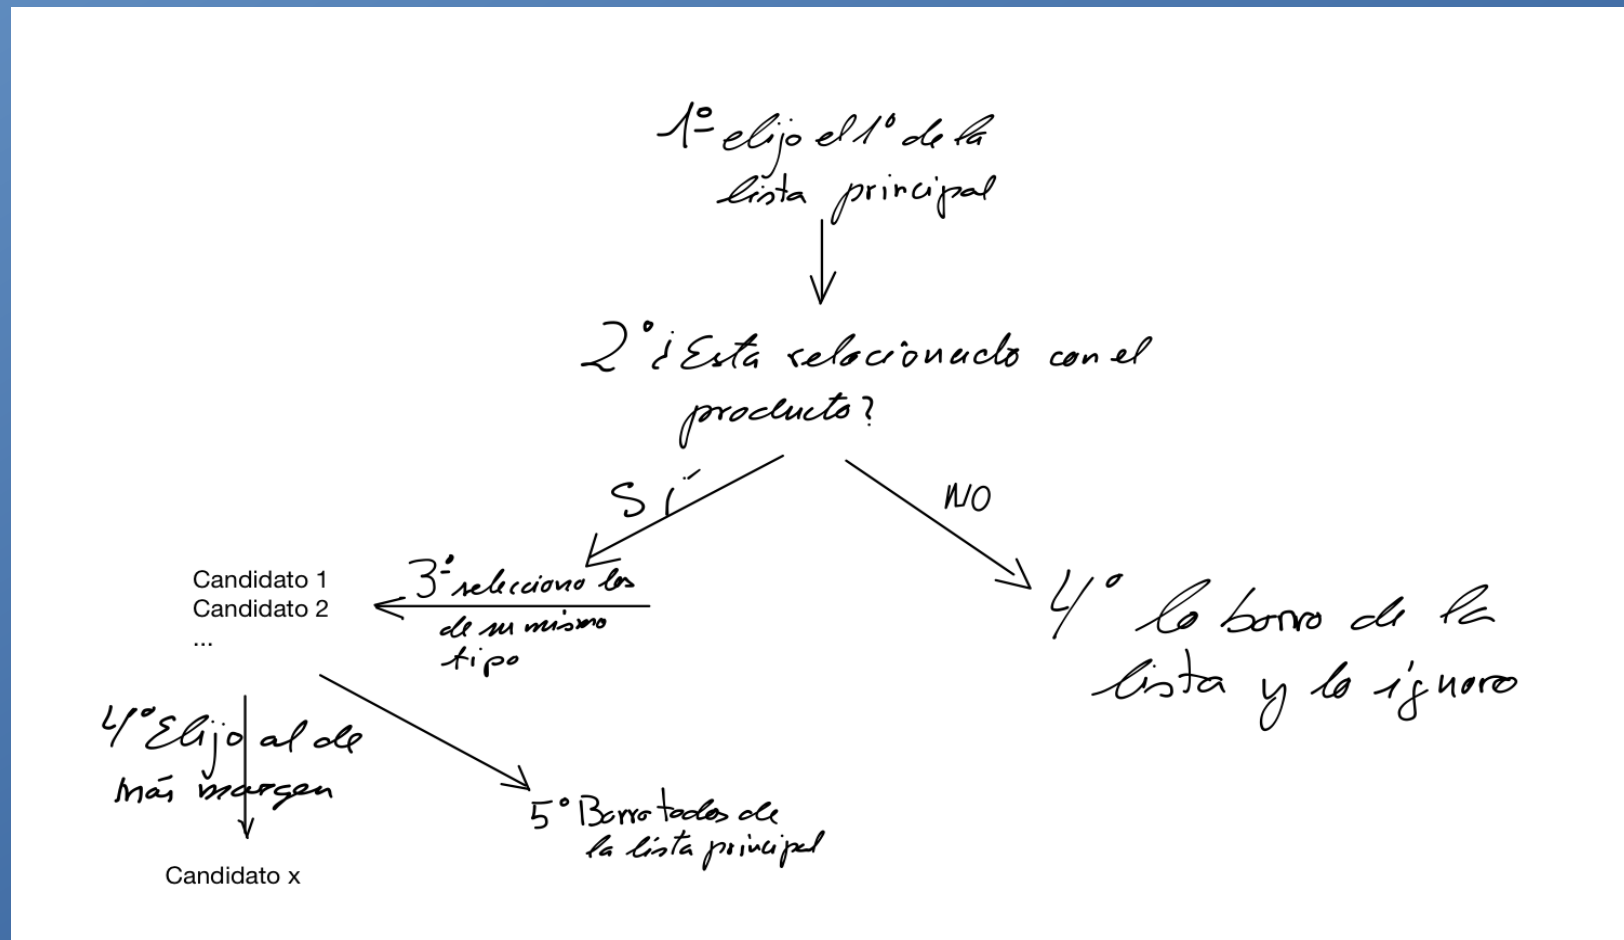 1º elijo el 1º de la
lista principal
2º ¿Esta relacionado con el
producto?
SÍ
NO
Candidato 1
Candidato 2
...
3º selecciono los
de su mismo
tipo
4º lo borro de la
lista y lo ignoro
4º Elijo al de
más margen
5º Borro todos de
la lista principal
Candidato x